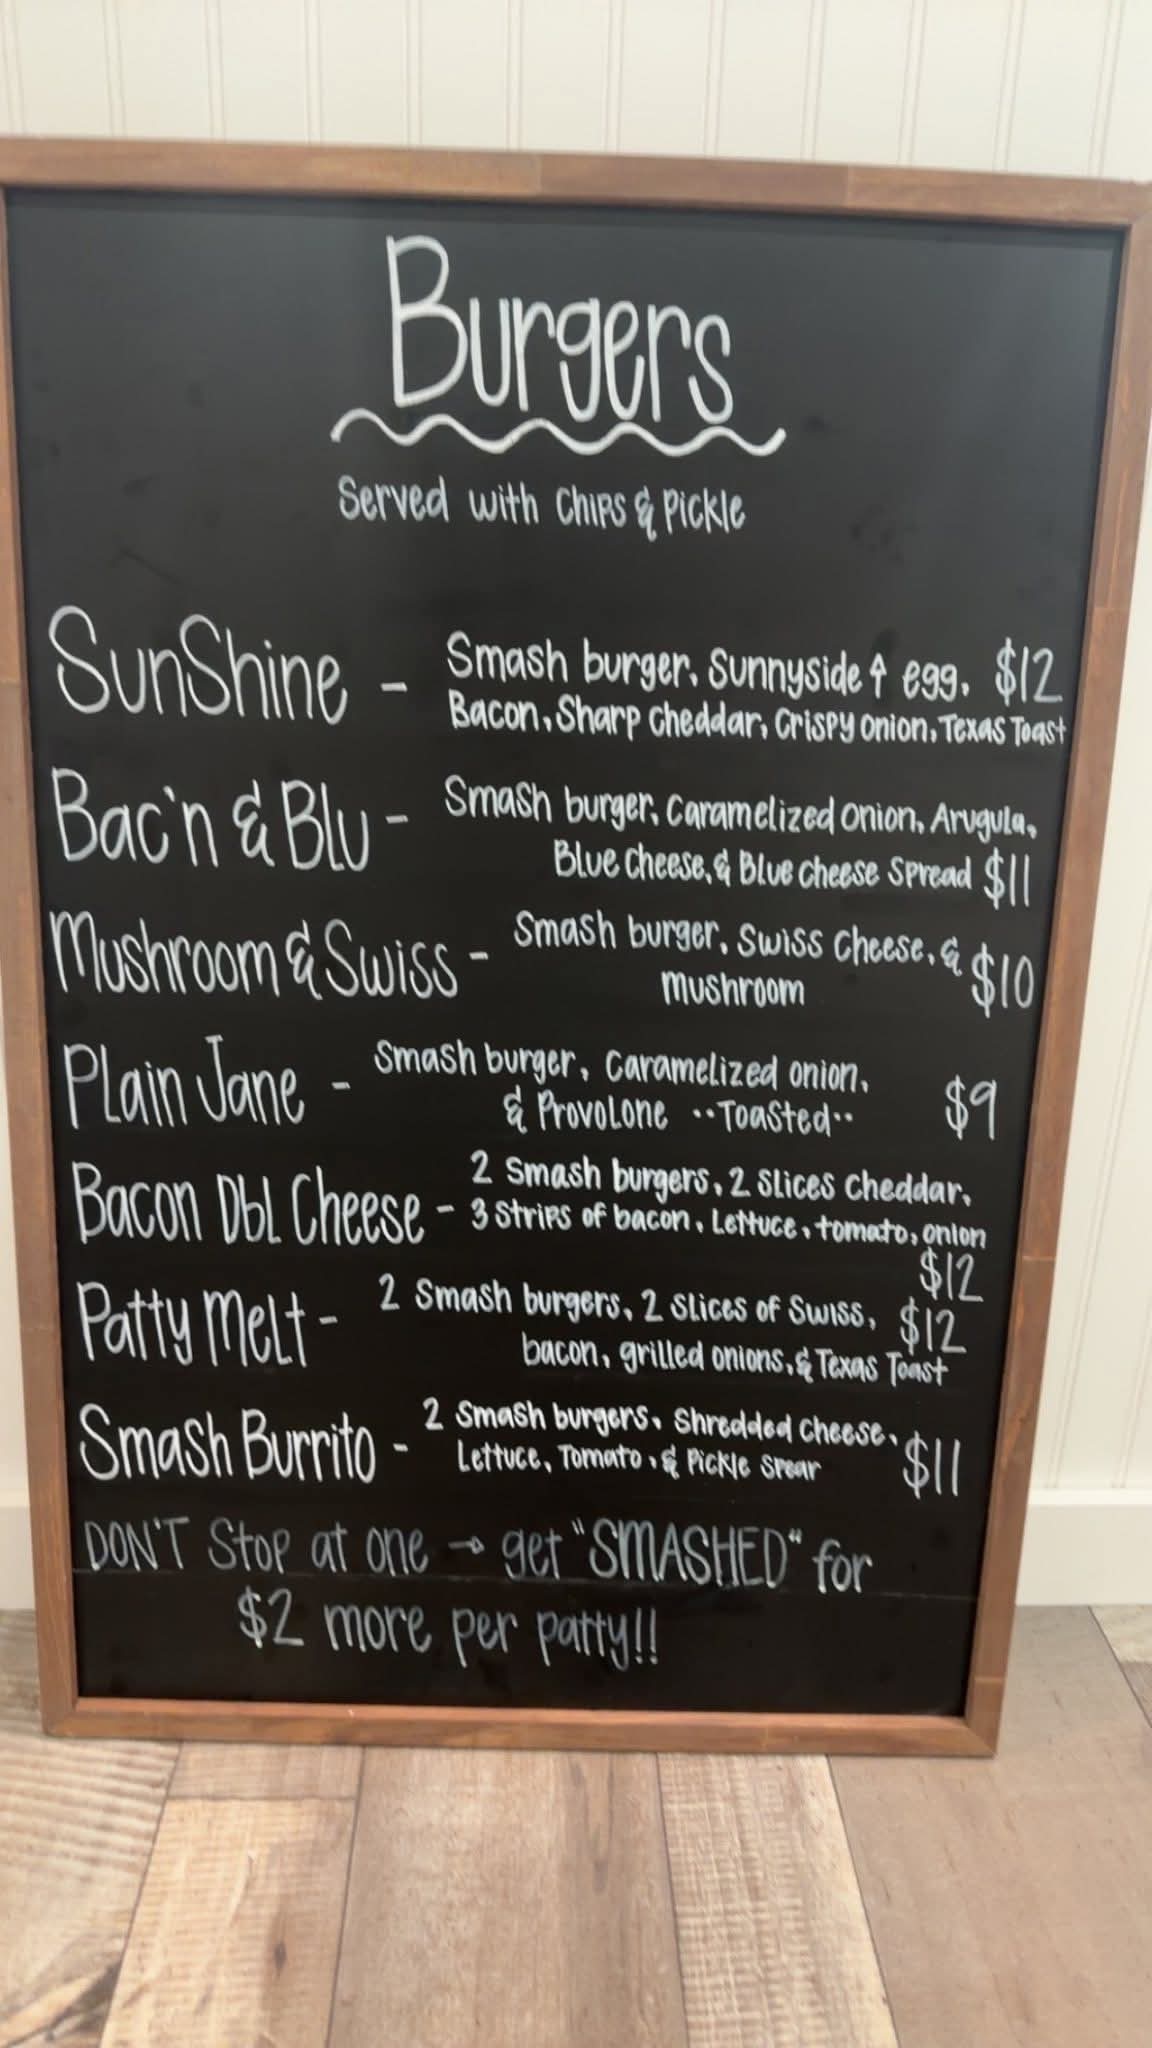 Burgers
Served with Chips & Pickle
SunShine - Smash burger, Sunnyside ↑ egg, $12
Bacon, Sharp Cheddar, Crispy onion, Texas Toast
Bac'n & Blu - Smash burger, Caramelized onion, Arugula,
Blue Cheese, & Blue cheese Spread $11
Mushroom & Swiss - Smash burger, Swiss Cheese, & $10
Mushroom
Plain Jane - Smash burger, Caramelized onion, $9
& Provolone ··Toasted··
Bacon Dbl Cheese - 2 Smash burgers, 2 slices Cheddar,
3 strips of bacon, Lettuce, tomato, onion
$12
Patty Melt - 2 Smash burgers, 2 slices of Swiss, $12
bacon, grilled onions, & Texas Toast
Smash Burrito - 2 Smash burgers, Shredded Cheese, $11
Lettuce, Tomato, & Pickle Spear
DON'T Stop at one → get "SMASHED" for
$2 more per patty!!